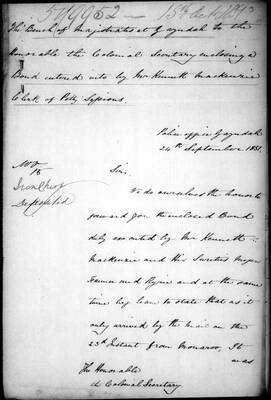 The Bench of Magistrates at Gayndah to the
Honorable the Colonial Secretary enclosing a
Bond entered into by Mr Kenneth Mackenzie
Clerk of Petty Sessions.
Police office Gayndah
24th September 1851.
Sir.
We do ourselves the honor to
forward you the enclosed Bond
duly executed by Mr Kenneth
Mackenzie and his Sureties Messrs
and at the same
time beg leave to state that as it
only arrived by the mail on the
23rd Instant from Monaroo, It
was
The Honorable
The Colonial Secretary